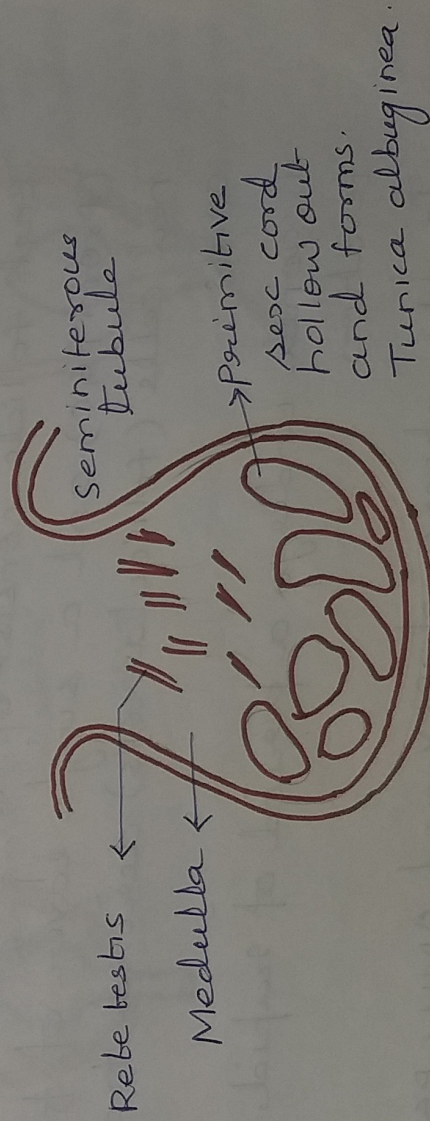 Rete testis
Medulla
Seminiferous
tubule
Primitive
sex cord
hollow out
and forms.
Tunica albuginea.